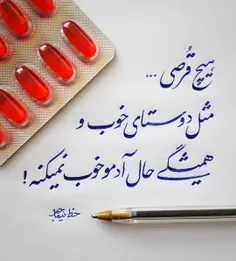 هیچ قُرصی ...
مثل دوستای خوب و
همیشگے حال آدمو خوب نمیکنه!